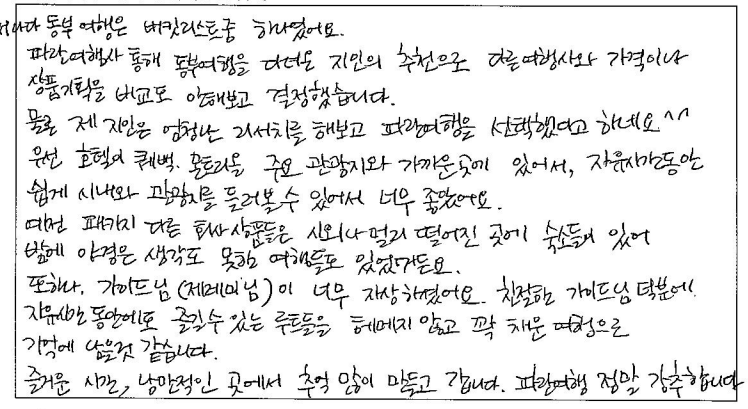 캐나다 동부 여행은 버킷리스트중 하나였어요.
파란여행사 통해 동부여행을 다녀온 지인의 추천으로 다른여행사와 가격이나
상품기획을 비교도 안해보고 결정했습니다.
물론 제 지인은 엄청난 리서치를 해보고 파란여행을 선택했다고 하네요^^
우선 호텔이 퀘벡, 몬트리올 주요 관광지와 가까운곳에 있어서, 자유시간동안
쉽게 시내와 관광지를 둘러볼 수 있어서 너무 좋았어요.
예전 패키지 다른 회사상품들은 시외나 멀리 떨어진 곳에 숙소들이 있어
밤에 야경은 생각도 못한 여행들도 있었거든요.
또하나. 가이드님(제레미님)이 너무 자상하셨어요. 친절한 가이드님 덕분에
자유시간 동안에도 즐길수 있는 루트들을 헤메지 않고 꽉 채운 여행으로
기억에 남을것 같습니다.
즐거운 시간, 낭만적인 곳에서 추억 많이 만들고 갑니다. 파란여행 정말 강추합니다